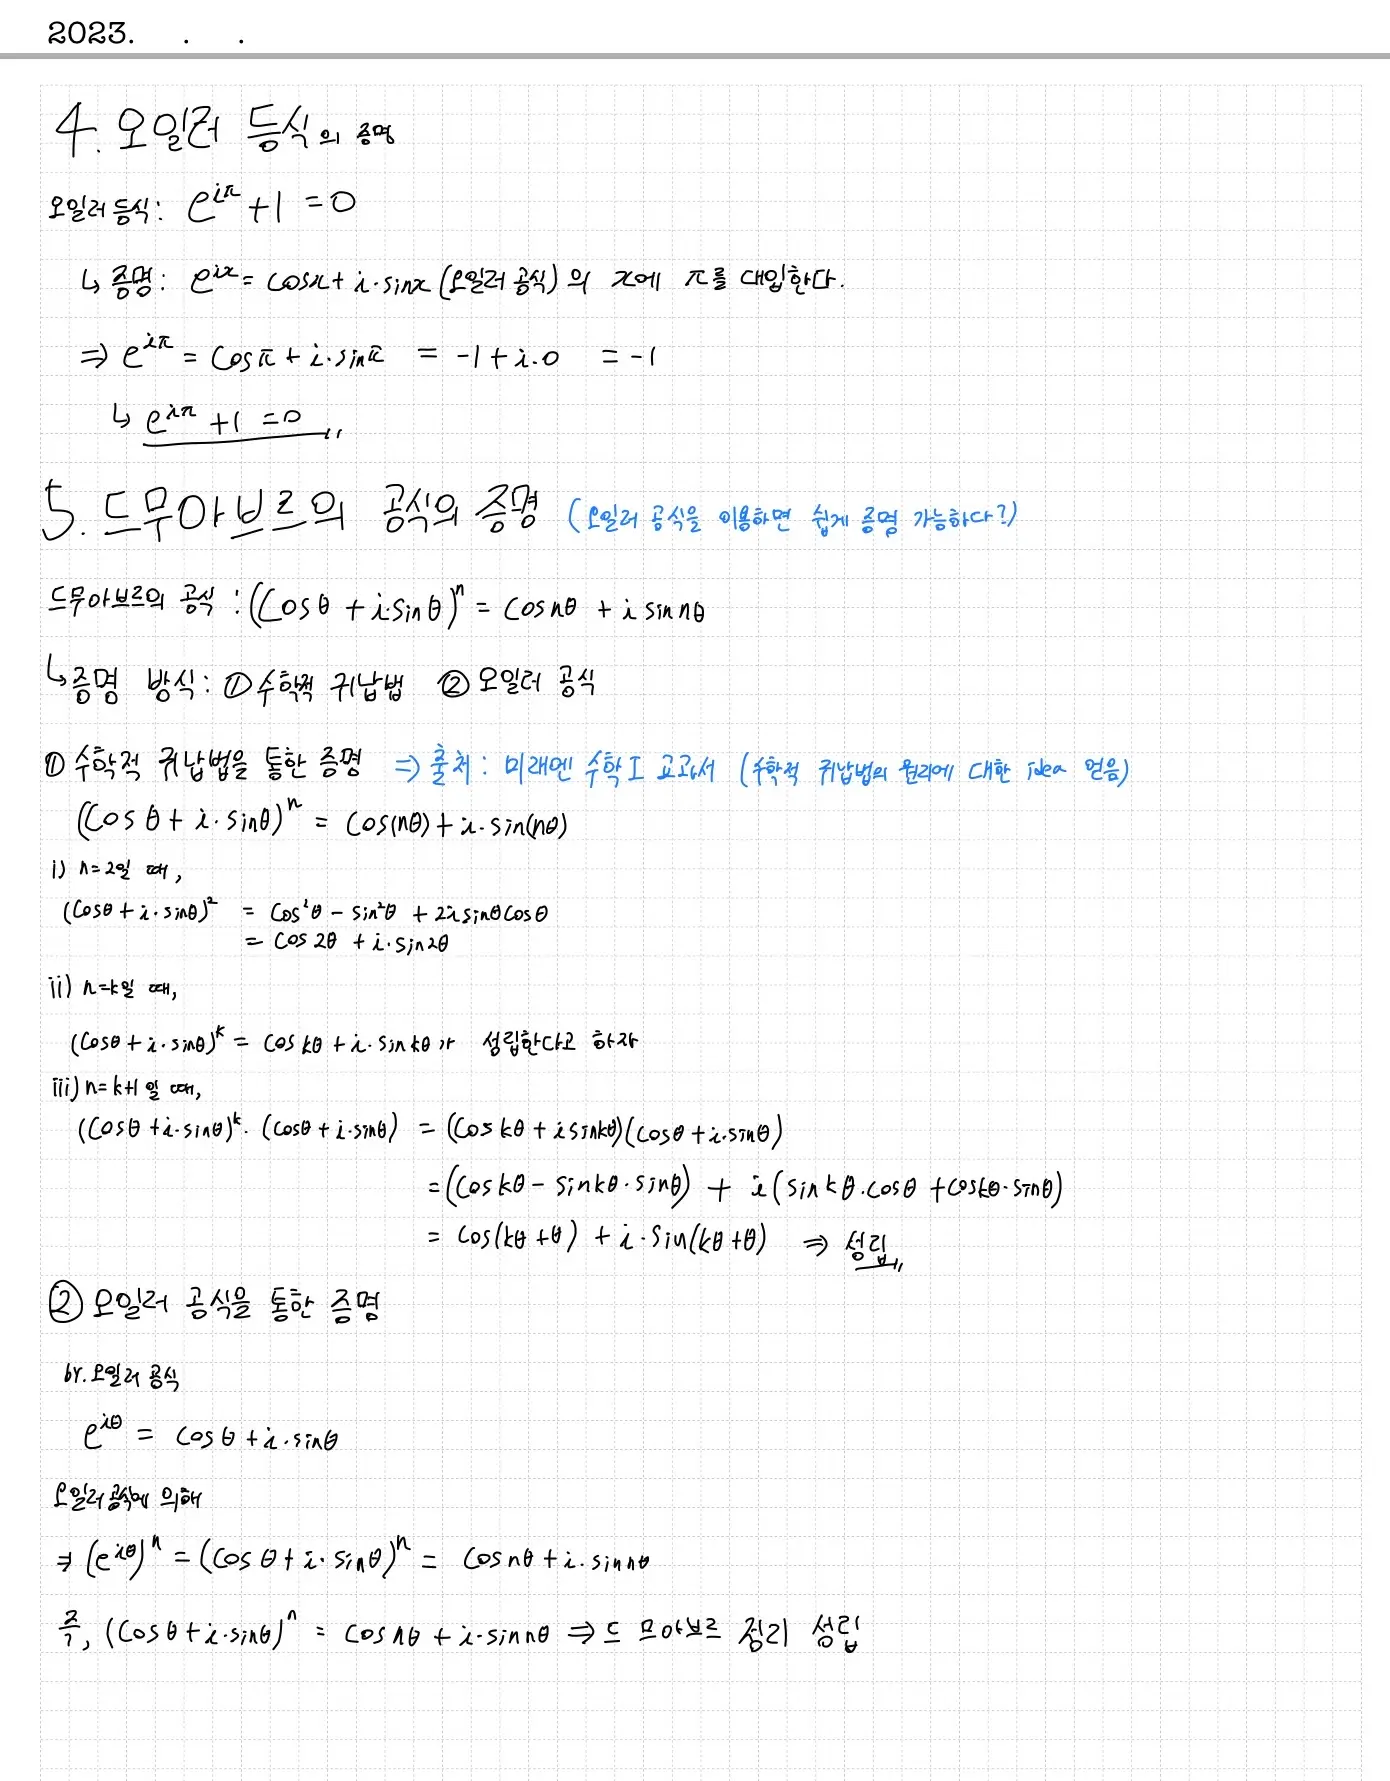 2023. . .
4. 오일러 등식의 증명
오일러 등식: e^{iπ} + 1 = 0
↳ 증명: e^{ix} = cosx + i·sinx (오일러 공식)의 x에 π를 대입한다.
⇒ e^{iπ} = cosπ + i·sinπ = -1 + i·0 = -1
↳ e^{iπ} + 1 = 0
5. 드무아브르의 공식의 증명 (오일러 공식을 이용하면 쉽게 증명 가능하다?)
드무아브르의 공식 : (cosθ + i·sinθ)^n = cosnθ + i sin nθ
↳ 증명 방식: ① 수학적 귀납법 ② 오일러 공식
① 수학적 귀납법을 통한 증명 ⇒ 출처: 미래엔 수학I 교과서 (수학적 귀납법의 원리에 대한 idea 얻음)
(cosθ + i·sinθ)^n = cos(nθ) + i·sin(nθ)
i) n=2일 때,
(cosθ + i·sinθ)^2 = cos^2θ - sin^2θ + 2i sinθcosθ
= cos2θ + i·sin2θ
ii) n=k일 때,
(cosθ + i·sinθ)^k = coskθ + i·sinkθ가 성립한다고 하자
iii) n=k+1일 때,
(cosθ + i·sinθ)^k·(cosθ + i·sinθ) = (coskθ + i sinkθ)(cosθ + i·sinθ)
= (coskθ - sinkθ·sinθ) + i(sinkθ·cosθ + coskθ·sinθ)
= cos(kθ+θ) + i·sin(kθ+θ) ⇒ 성립
② 오일러 공식을 통한 증명
br. 오일러 공식
e^{iθ} = cosθ + i·sinθ
오일러 공식에 의해
⇒ (e^{iθ})^n = (cosθ + i·sinθ)^n = cosnθ + i·sinnθ
즉, (cosθ + i·sinθ)^n = cosnθ + i·sinnθ ⇒ 드 므아브르 정리 성립